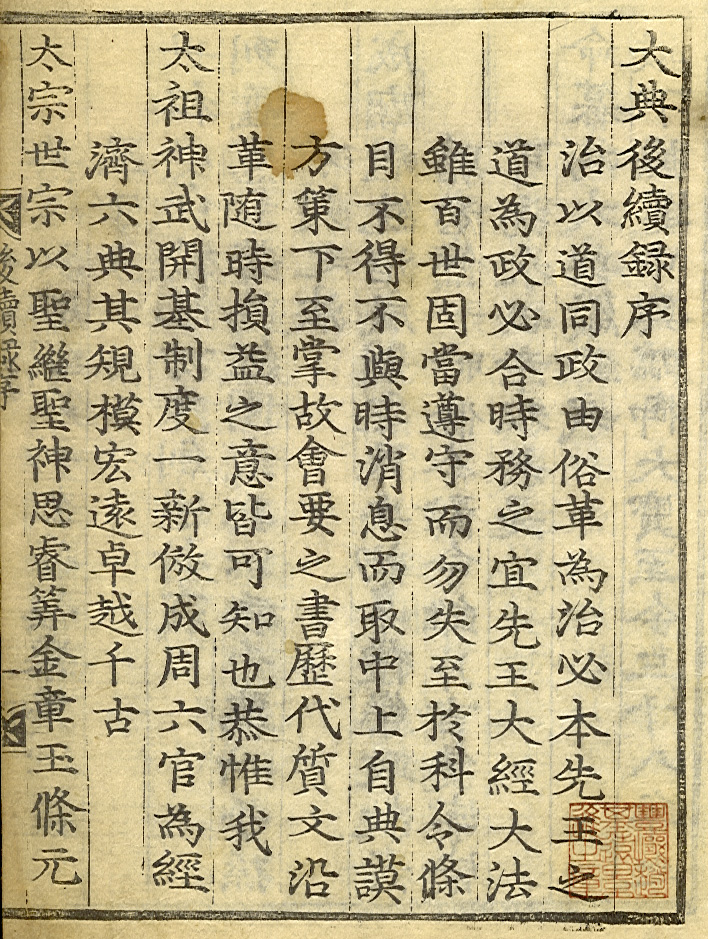 大典後續録序
治以道同政由俗革為治必本先王之
道為政必合時務之宜先王大經大法
雖百世固當遵守而勿失至於科令條
目不得不與時消息而取中上自典謨
方策下至掌故會要之書歷代質文沿
革随時損益之意皆可知也恭惟我
太祖神武開基制度一新倣成周六官為經
濟六典其規模宏遠卓越千古
太宗世宗以聖繼聖神思睿筭金章玉條元
後續録序
一